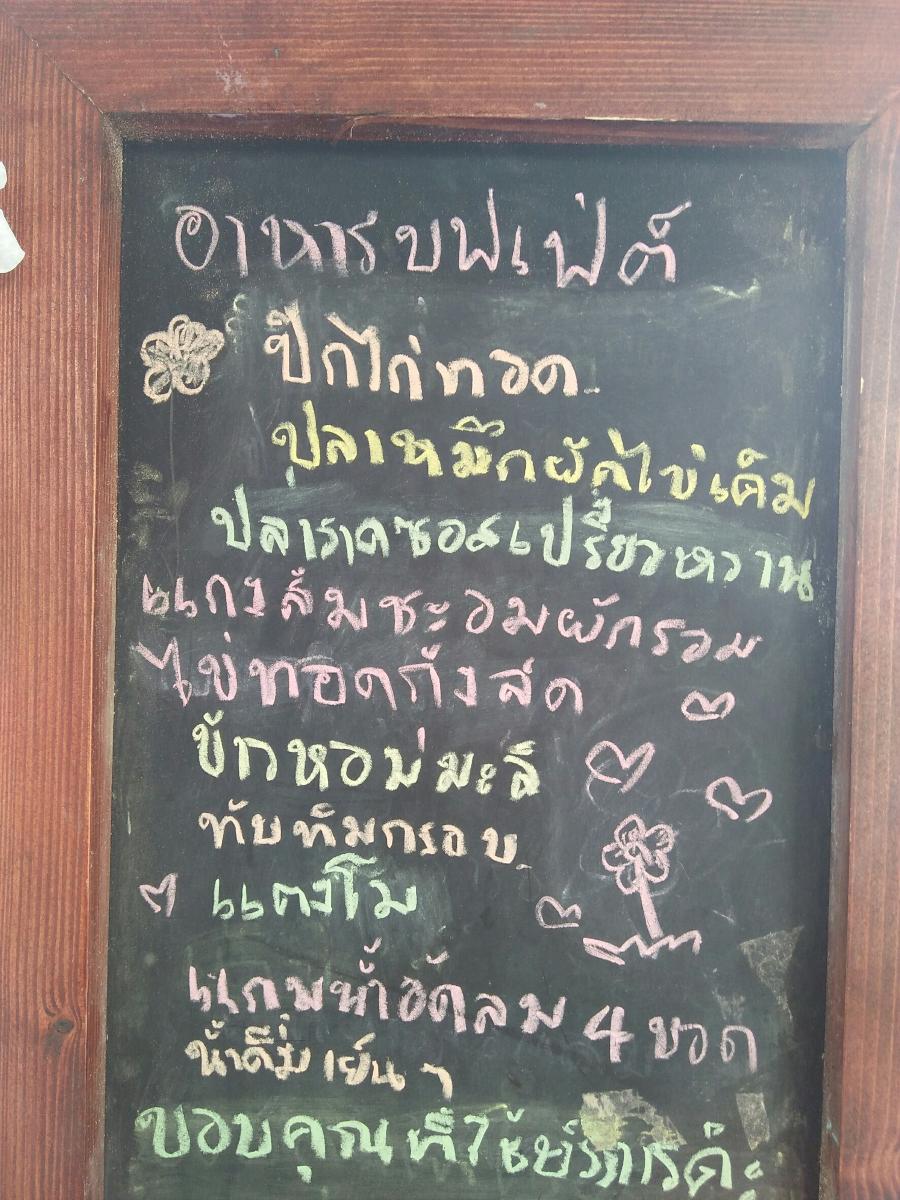 อาหารบุฟเฟ่ต์
ปีกไก่ทอด
ปลาหมึกผัดไข่เค็ม
ปลาราดซอสเปรี้ยวหวาน
แกงส้มชะอมผักรวม
ไข่ทอดกุ้งสด
ข้าวหอมมะลิ
ทับทิมกรอบ
แตงโม
แถมน้ำอัดลม 4 ขวด
น้ำดื่มเย็นๆ
ขอบคุณที่ใช้บริการค่ะ